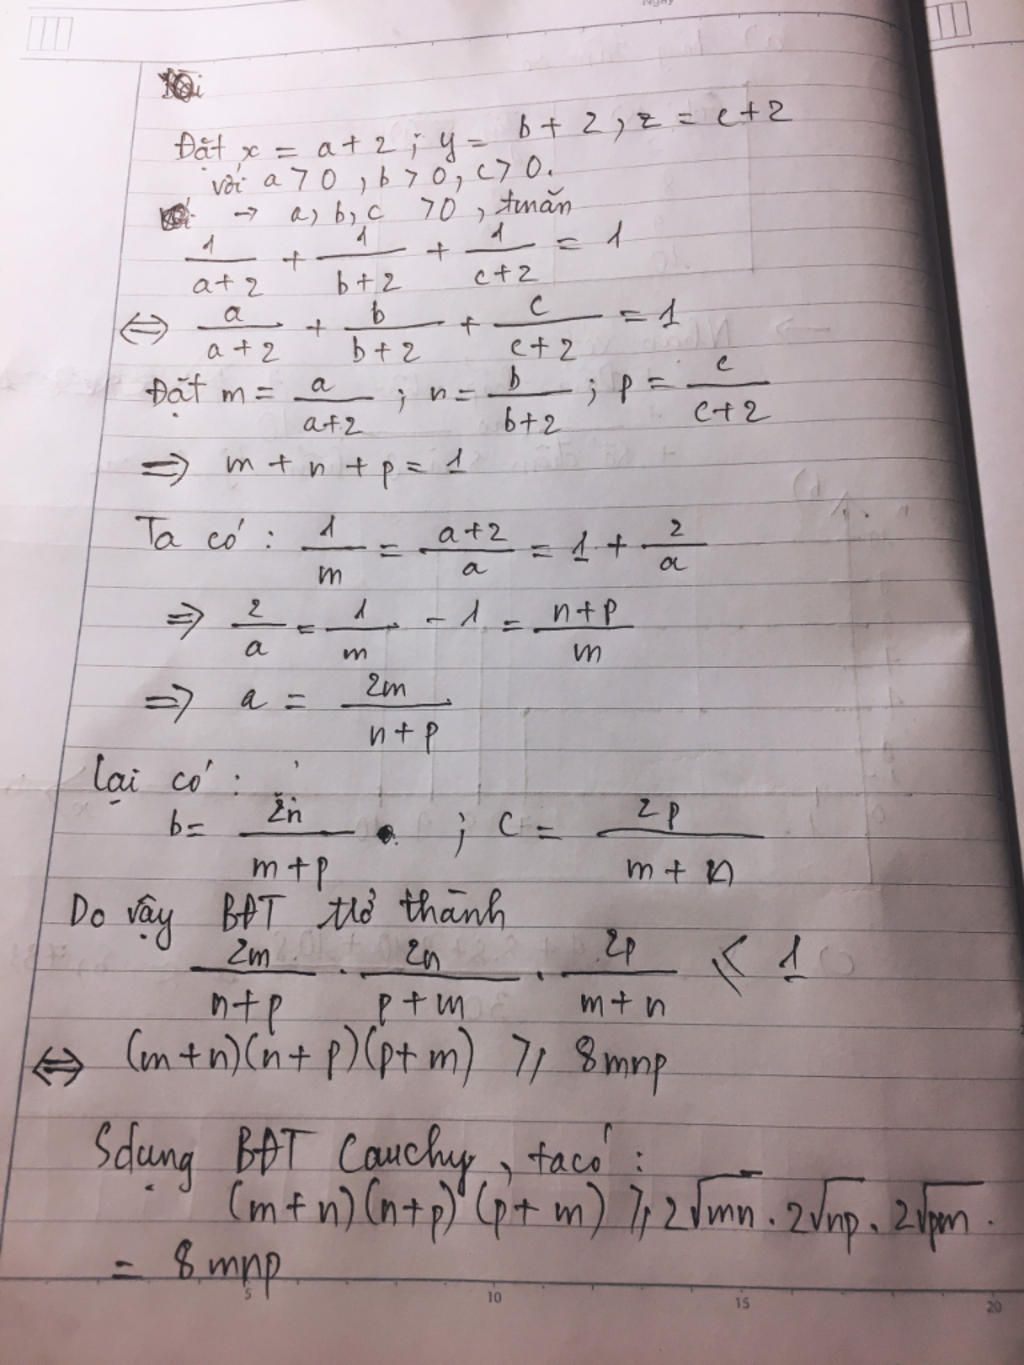 Đặt x = a+2 ; y = b+2 , z = c+2
với a > 0 , b > 0 , c > 0.
→ a, b, c > 0 , tmãn
1/(a+2) + 1/(b+2) + 1/(c+2) = 1
⇔ a/(a+2) + b/(b+2) + c/(c+2) = 1
Đặt m = a/(a+2) ; n = b/(b+2) ; p = c/(c+2)
⇒ m + n + p = 1
Ta có : 1/m = (a+2)/a = 1 + 2/a
⇒ 2/a = 1/m - 1 = (n+p)/m
⇒ a = 2m/(n+p)
lại có :
b = 2n/(m+p) ; c = 2p/(m+n)
Do vậy BĐT trở thành
2m/(n+p) . 2n/(p+m) . 2p/(m+n) ≤ 1
⇔ (m+n)(n+p)(p+m) ≥ 8mnp
Sdụng BĐT Cauchy, ta có :
(m+n)(n+p)(p+m) ≥ 2√mn . 2√np . 2√pm .
= 8mnp
5 10 15 20